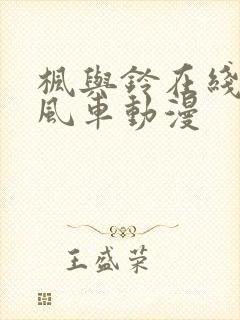 楓與鈴在綫
風車動漫
王盛荣